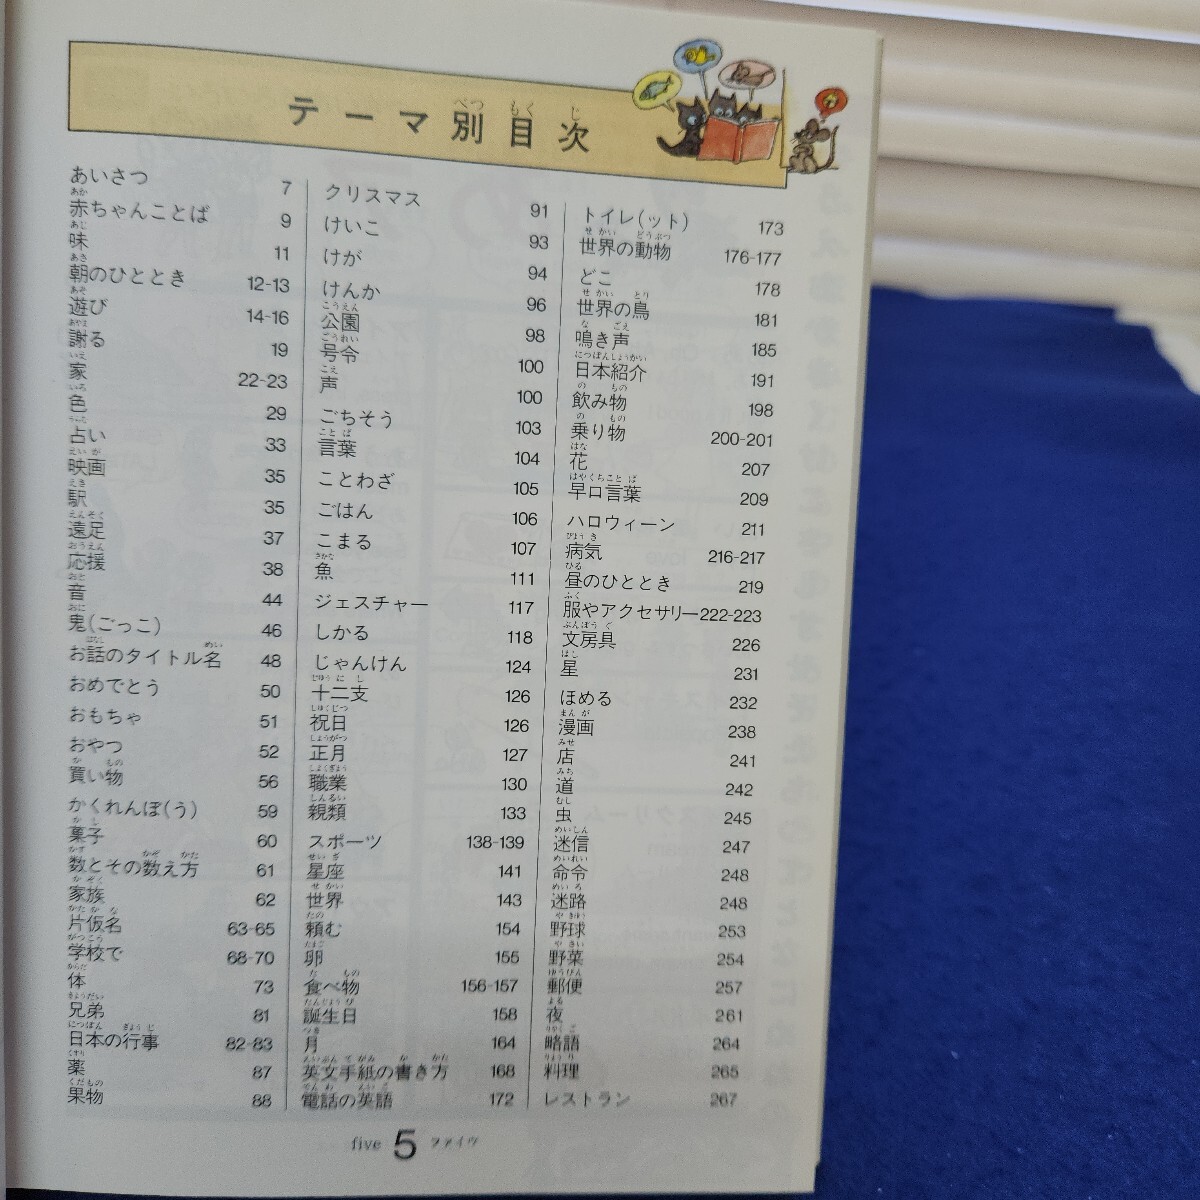 テーマ別目次
あいさつ 7
赤ちゃんことば 9
味 11
朝のひととき 12-13
遊び 14-16
謝る 19
家 22-23
色 29
占い 33
映画 35
駅 35
遠足 37
応援 38
音 44
鬼(ごっこ) 46
お話のタイトル名 48
おめでとう 50
おもちゃ 51
おやつ 52
買い物 56
かくれんぼ(う) 59
菓子 60
数とその数え方 61
家族 62
片仮名 63-65
学校で 68-70
体 73
兄弟 81
日本の行事 82-83
薬 87
果物 88
クリスマス 91
けいこ 93
けが 94
けんか 96
公園 98
号令 100
声 100
ごちそう 103
言葉 104
ことわざ 105
ごはん 106
こまる 107
魚 111
ジェスチャー 117
しかる 118
じゃんけん 124
十二支 126
祝日 126
正月 127
職業 130
親類 133
スポーツ 138-139
星座 141
世界 143
頼む 154
卵 155
食べ物 156-157
誕生日 158
月 164
英文手紙の書き方 168
電話の英語 172
トイレ(ット) 173
世界の動物 176-177
どこ 178
世界の鳥 181
鳴き声 185
日本紹介 191
飲み物 198
乗り物 200-201
花 207
早口言葉 209
ハロウィーン 211
病気 216-217
昼のひととき 219
服やアクセサリー 222-223
文房具 226
星 231
ほめる 232
漫画 238
店 241
道 242
虫 245
迷信 247
命令 248
迷路 248
野球 253
野菜 254
郵便 257
夜 261
略語 264
料理 265
レストラン 267
five 5 ファイヴ